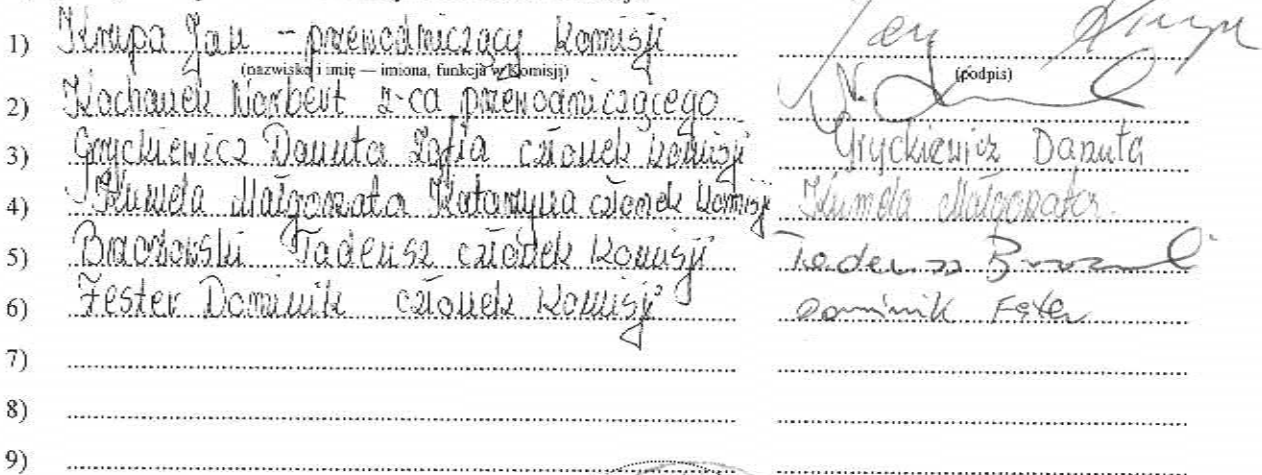 1) Krupa Jan - przewodniczący Komisji Jan Krupa
(nazwisko i imię — imiona, funkcja w Komisji) (podpis)
2) Kochanek Norbert z-ca przewodniczącego N.
3) Gryckiewicz Danuta Zofia członek komisji Gryckiewicz Danuta
4) Kumela Małgorzata Katarzyna członek Komisji Kumela Małgorzata
5) Tadeusz członek Komisji Tadeusz
6) Fester Dominik członek Komisji Dominik Fester
7)
8)
9)